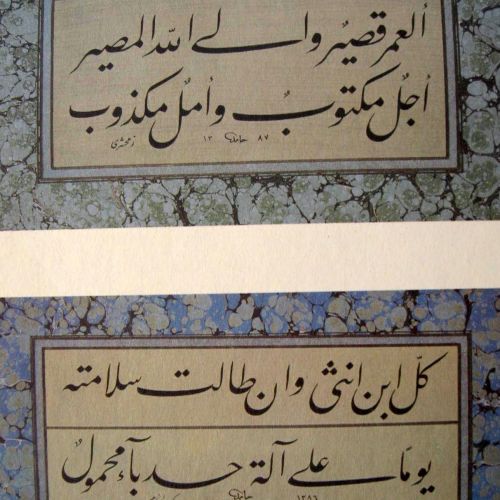 ألعمر قصير والى الله المصير
أجلٌ مكتوبٌ وأملٌ مكذوب
زمخشري حامد ١٣٨٧
كلّ ابن انثى وان طالت سلامته
يوماً على آلة حدبآء محمولٌ
حامد ١٣٨٦